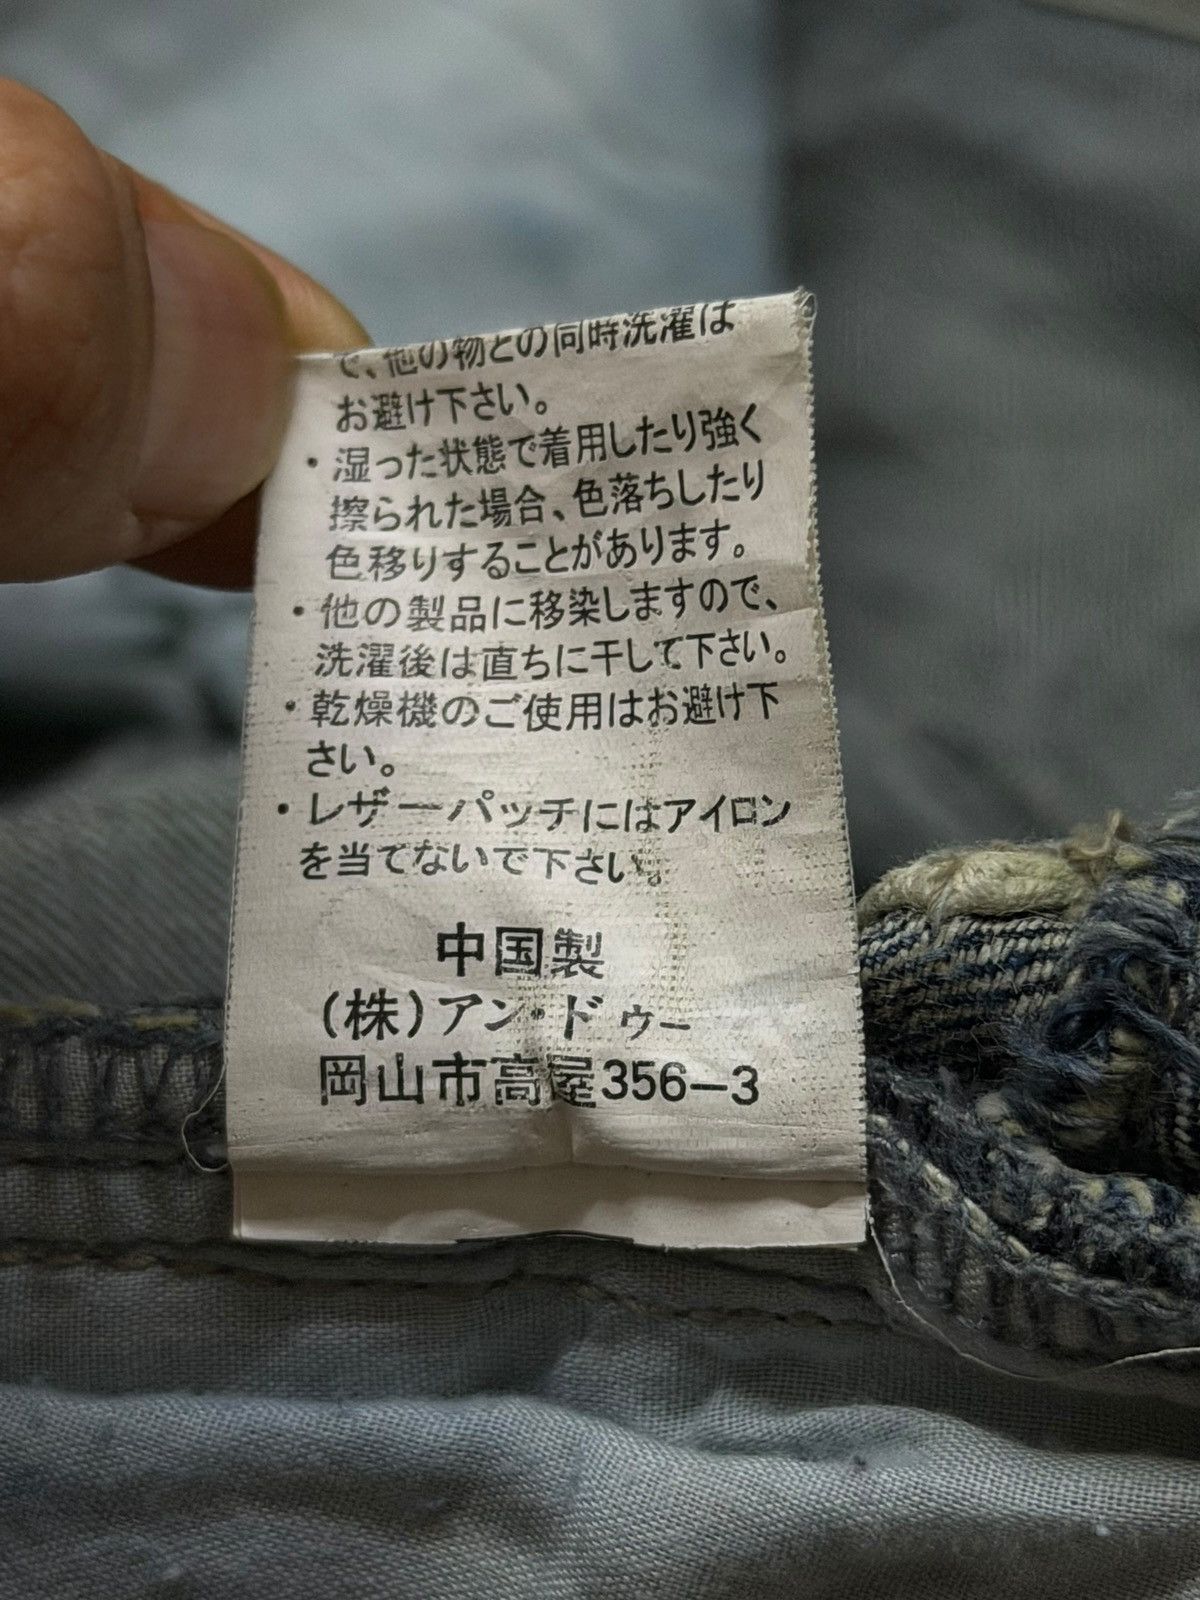 で、他の物との同時洗濯は
お避け下さい。
・湿った状態で着用したり強く
擦られた場合、色落ちしたり
色移りすることがあります。
・他の製品に移染しますので、
洗濯後は直ちに干して下さい。
・乾燥機のご使用はお避け下
さい。
・レザーパッチにはアイロン
を当てないで下さい。
中国製
(株)アン・ドゥー
岡山市高屋356-3